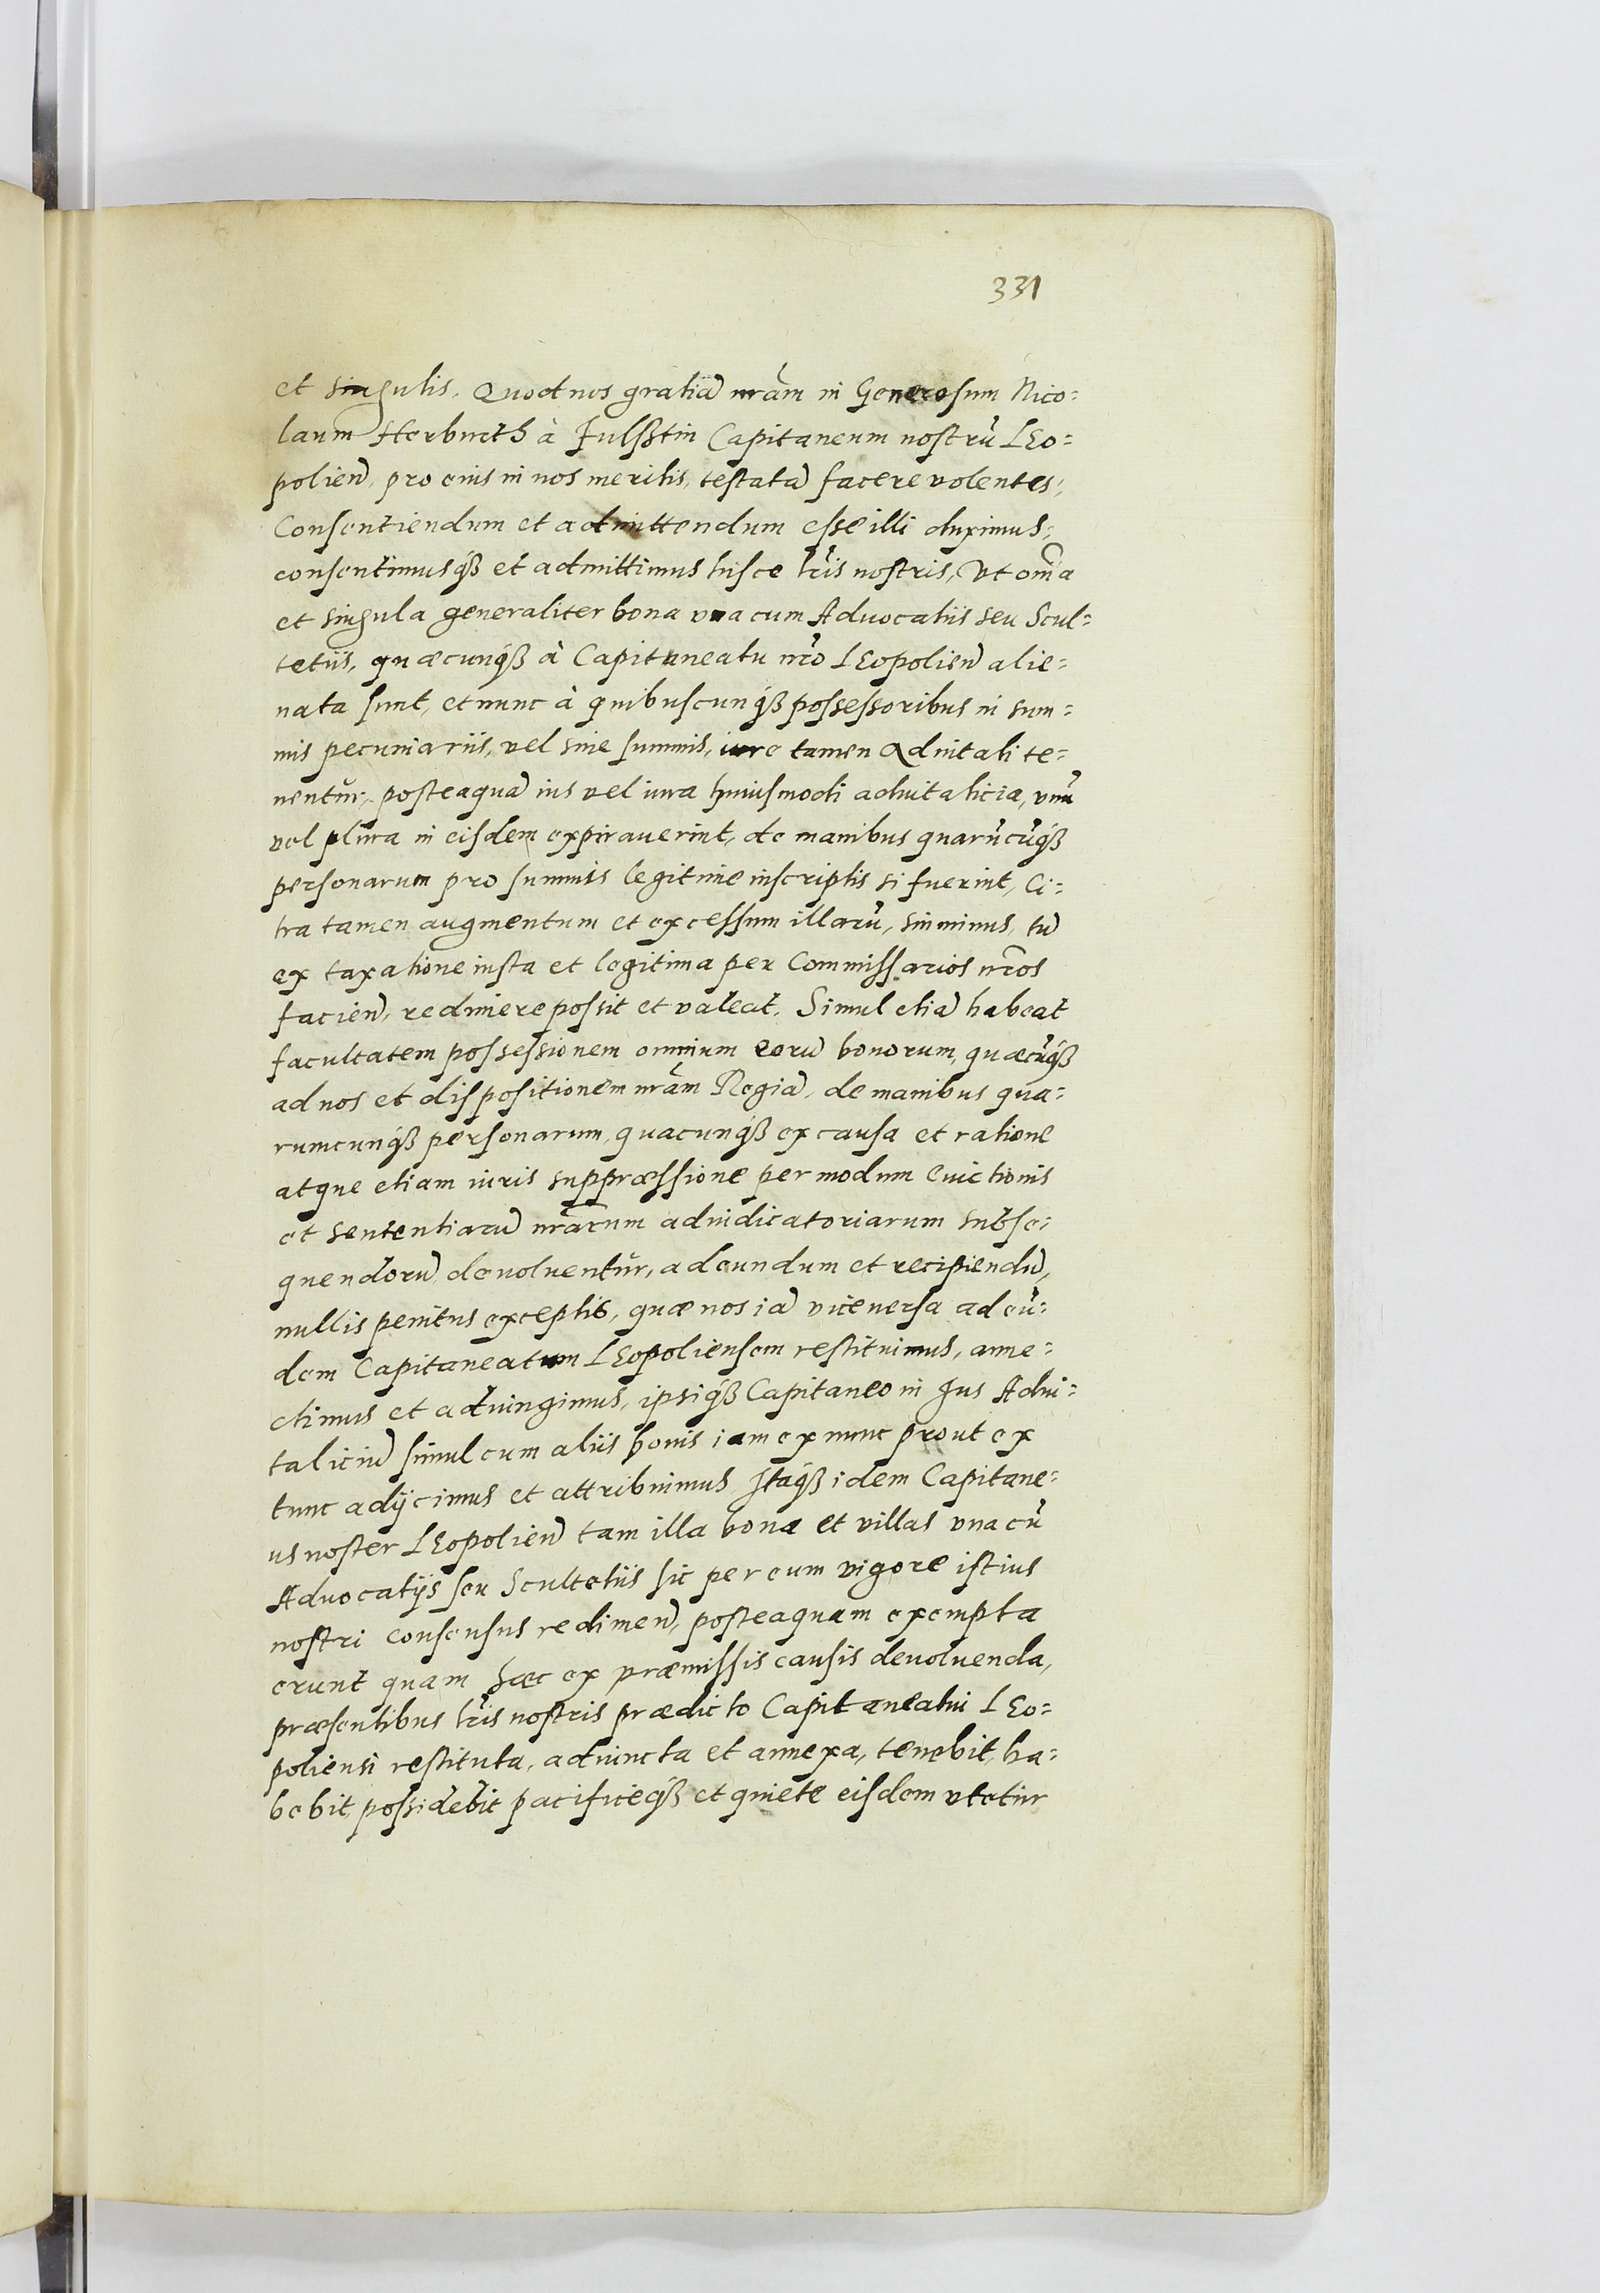 331
et singulis. Quod nos gratiā nrām in Generosum Nico=
laum Herburth à Fulsstin Capitaneum nostrū LEo=
polien̄, pro eius in nos meritis, testatā facere volentes,
Consentiendum et admittendum esse illi duximus,
consentimusq́ꝫ et admittimus hisce lr̄is nostris, Vt om̄ia
et singula generaliter bona vna cum Aduocatiis seu Scul=
tetiis, quæcunq́ꝫ à Capitaneatu nr̄o LEopolien̄ alie=
nata sunt, et nunc à quibuscunq́ꝫ possessoribus in sum=
mis pecuniariis, vel sine summis, iure tamen aduitali te=
nentur, posteaquā ius vel iura huiusmodi aduitalicia, vnū
vel plura in eisdem expirauerint, de manibus quarūcūq́ꝫ
personarum pro summis legitime inscriptis si fuerint, Ci=
tra tamen augmentum et excessum illarū, sin minus, tū
ex taxatione iusta et legitima per Commissarios nr̄os
facien̄, redimere possit et valeat. Simul etiā habeat
facultatem possessionem omnium eorū bonorum, quæcūq́ꝫ
ad nos et dispositionem nrām Regiā, de manibus qua=
rumcunq́ꝫ personarum, quacunq́ꝫ ex causa et ratione
atque etiam iuris suppræssione per modum euictionis
et sententiarū nrārum adiudicatoriarum subse=
quendorū deuoluentur, adeundum et recipiendū,
nullis penitus exceptis, quæ nos iā vice versa ad eū=
dem Capitaneatum LEopoliensem restituimus, anne=
ctimus et adiungimus, ipsiq́ꝫ Capitaneo in Jus Adui=
taliciū simul cum aliis bonis iam ex nunc prout ex
tunc adijcimus et attribuimus Itaq́ꝫ idem Capitane=
us noster LEopolien̄ tam illa bona et villas vna cū
Aduocatijs seu Scultetiis sic per eum vigore istius
nostri consensus redimen̄, posteaquam exempta
erunt quam hæc ex præmissis causis deuoluenda,
præsentibus lr̄is nostris prædicto Capitaneatui LEo=
poliensi restituta, adiuncta et annexa, tenebit, ha=
bebit, possidebit pacificeq́ꝫ et quiete eisdem vtetur